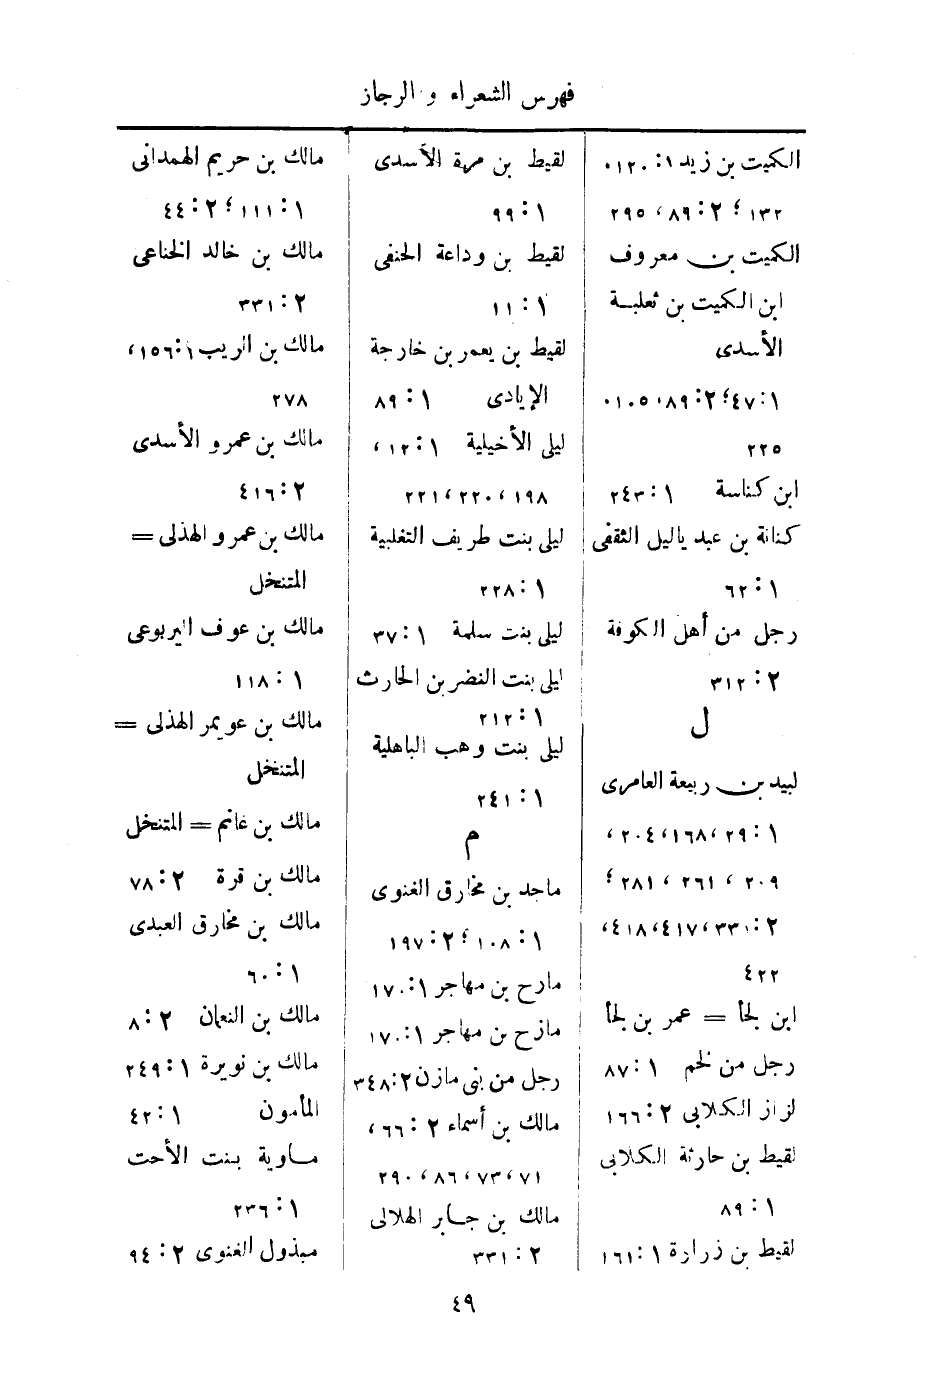 فهرس الشعراء و الرجاز
الكميت بن زيد ١ : ١٢٠،
١٣٢ ؛ ٢ : ٨٩، ٢٩٥
الكميت بن معروف
ابن الكميت بن ثعلبة
الأسدى
١ : ٤٧؛ ٢ : ٨٩، ١٠٥،
٢٢٥
ابن كناسة ١ : ٢٤٣
كنانة بن عبد ياليل الثقفى
١ : ٦٢
رجل من أهل الكوفة
٢ : ٣١٢
ل
لبيد بن ربيعة العامرى
١ : ٢٩، ١٦٨، ٢٠٤،
٢٠٩، ٢٦١، ٢٨١؛
٢ : ٣٣١، ٤١٧، ٤١٨،
٤٢٢
ابن لجأ = عمر بن لجأ
رجل من لخم ١ : ٨٧
لزاز الكلابى ٢ : ١٦٦
لقيط بن حارثة الكلابى
١ : ٨٩
لقيط بن زرارة ١ : ١٦١
لقيط بن مرة الأسدى
١ : ٩٩
لقيط بن وداعة الحنفى
١ : ١١
لقيط بن يعمر بن خارجة
الإيادى ١ : ٨٩
ليلى الأخيلية ١ : ١٢،
١٩٨، ٢٢٠، ٢٢١
ليلى بنت طريف التغلبية
١ : ٢٢٨
ليلى بنت سلمة ١ : ٣٧
ليلى بنت النضر بن الحارث
١ : ٢١٢
ليلى بنت وهب الباهلية
١ : ٢٤١
م
ماجد بن مخارق الغنوى
١ : ١٠٨؛ ٢ : ١٩٧
مارح بن مهاجر ١ : ١٧٠
مازح بن مهاجر ١ : ١٧٠
رجل من بنى مازن ٢ : ٣٤٨
مالك بن أسماء ٢ : ٦٦،
٧١، ٧٣، ٨٦، ٢٩٠
مالك بن جابر الهلالى
٢ : ٣٣١
مالك بن حريم الهمدانى
١ : ١١١؛ ٢ : ٤٤
مالك بن خالد الخناعى
٢ : ٣٣١
مالك بن الريب ١ : ١٥٦،
٢٧٨
مالك بن عمرو الأسدى
٢ : ٤١٦
مالك بن عمرو الهذلى =
المتنخل
مالك بن عوف اليربوعى
١ : ١١٨
مالك بن عويمر الهذلى =
المتنخل
مالك بن غانم = المتنخل
مالك بن قرة ٢ : ٧٨
مالك بن مخارق العبدى
١ : ٦٠
مالك بن النعمان ٢ : ٨
مالك بن نويرة ١ : ٢٤٩
المأمون ١ : ٤٢
ماوية بنت الأحت
١ : ٢٣٦
مبذول الغنوى ٢ : ٩٤
٤٩